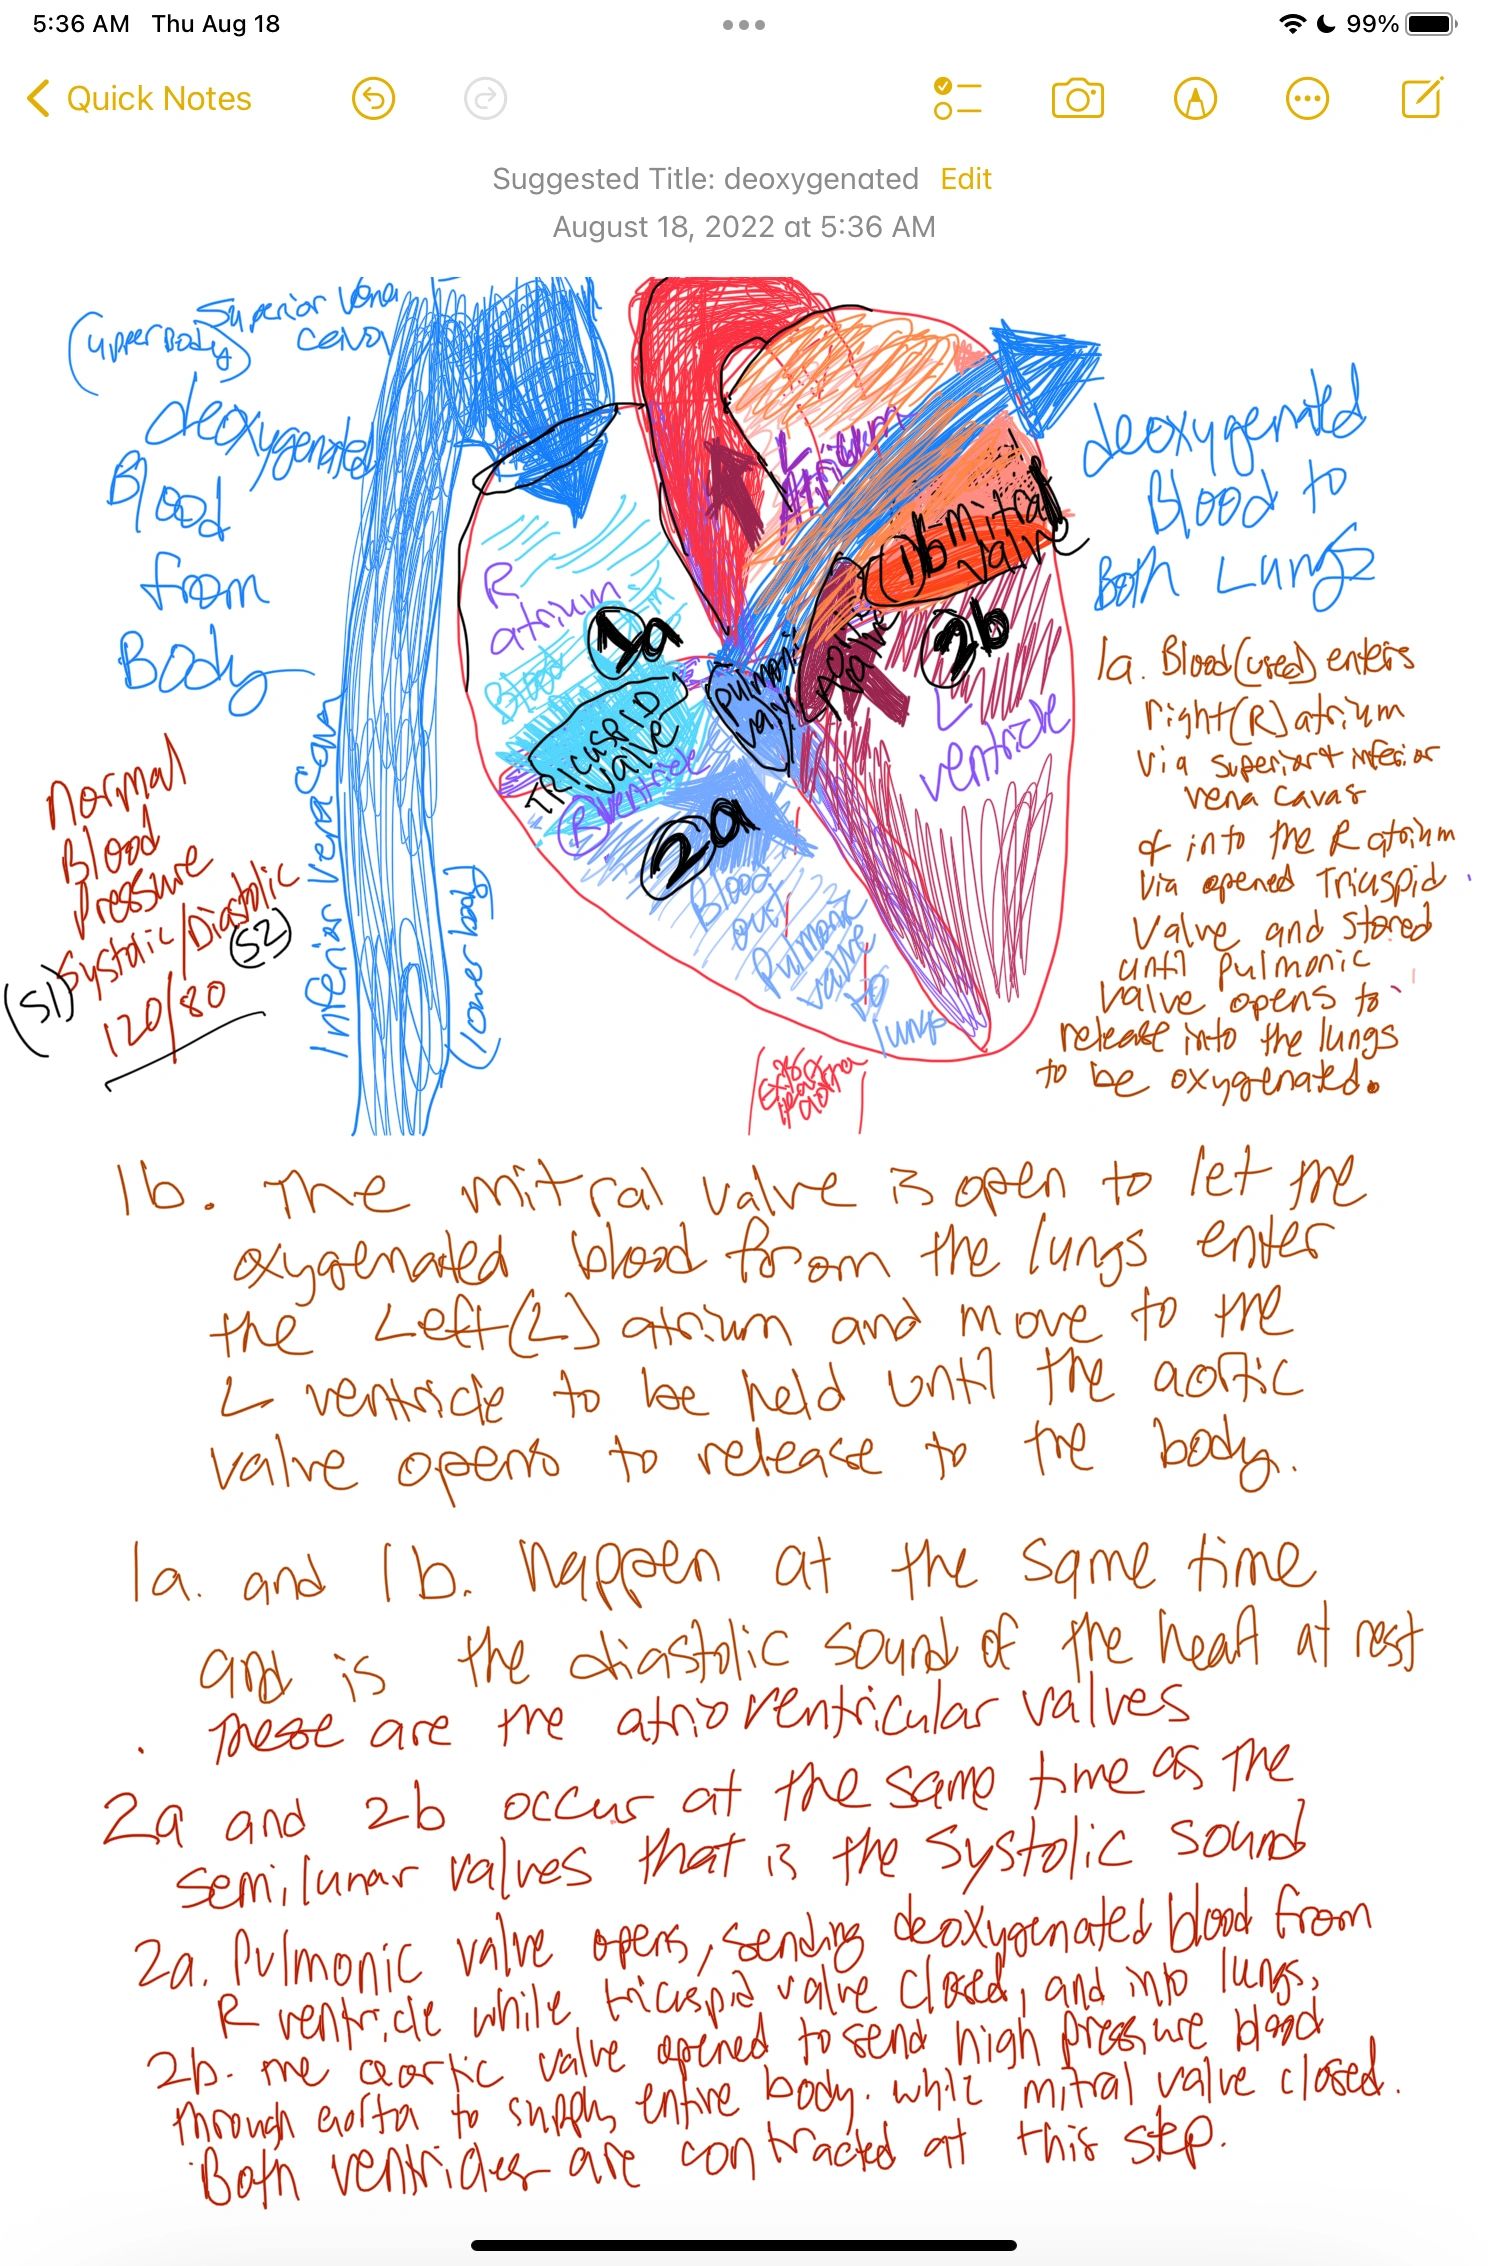 5:36 AM Thu Aug 18
99%
Quick Notes
Suggested Title: deoxygenated Edit
August 18, 2022 at 5:36 AM
Superior Vena
cava
(upper Body)
deoxygenated
Blood
from
Body
Normal
Blood
Pressure
Systolic/Diastolic
(S1)
(S2)
120/80
Inferior vena cava
(lower body)
R
atrium
1a
Blood
TRICUSPID
valve
(R) ventricle
2a
Blood
out
Pulmonic
valve
to
lungs
pulmonic
valve
L
Atrium
1b mitral
valve
valve
2b
L
ventricle
aorta
deoxygenated
Blood to
Both Lungs
1a. Blood (used) enters
right (R) atrium
via superior + inferior
vena cavas
+ into the R atrium
via opened Tricuspid
valve and stored
until pulmonic
valve opens to
release into the lungs
to be oxygenated.
1b. The mitral valve is open to let the
oxygenated blood from the lungs enter
the Left (L) atrium and move to the
L ventricle to be held until the aortic
valve opens to release to the body.
1a. and 1b. happen at the same time
and is the diastolic sound of the heart at rest
. These are the atrioventricular valves
2a and 2b occur at the same time as the
semilunar valves that is the systolic sound
2a. Pulmonic valve opens, sending deoxygenated blood from
R ventricle while tricuspid valve closed, and into lungs,
2b. The aortic valve opened to send high pressure blood
through aorta to supply entire body. while mitral valve closed.
Both ventricles are contracted at this step.